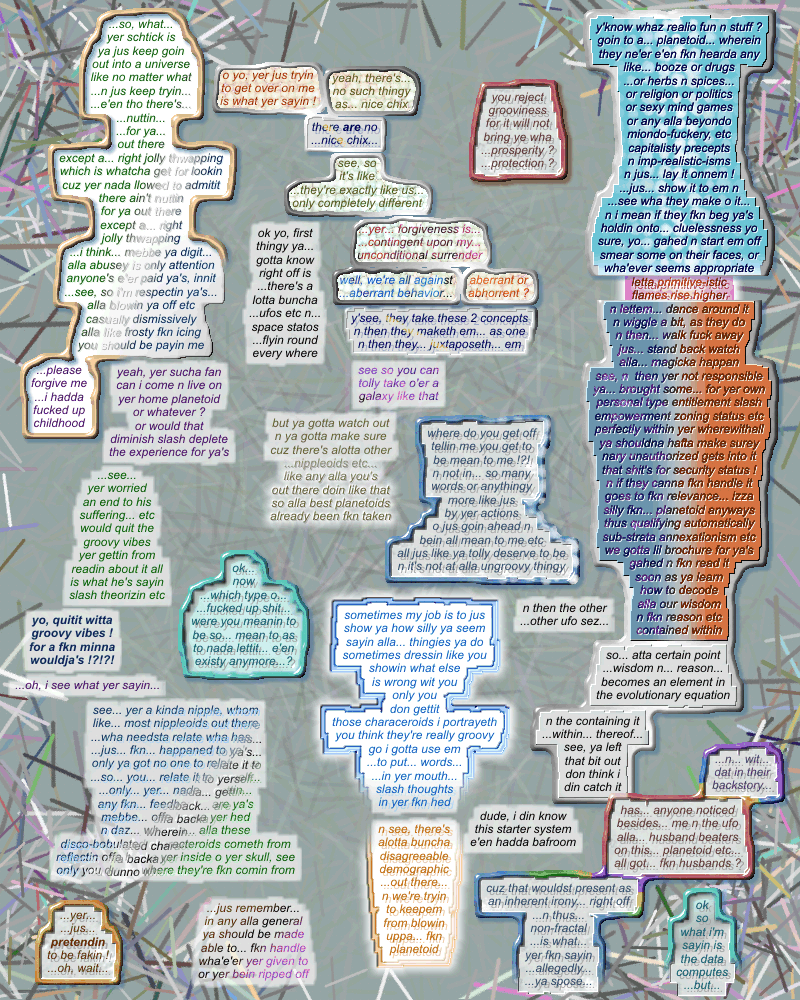 ...so, what...
yer schtick is
ya jus keep goin
out into a universe
like no matter what
...n jus keep tryin...
...e'en tho there's...
...nuttin...
...for ya...
out there
except a... right jolly thwapping
which is whatcha get for lookin
cuz yer nada llowed to admitit
there ain't nuttin
for ya out there
except a... right
jolly thwapping
...i think... mebbe ya digit...
alla abusey is only attention
anyone's e'er paid ya's, innit
...see, so i'm respectin ya's...
alla blowin ya off etc
casually dismissively
alla like frosty fkn icing
you should be payin me
...please
forgive me
...i hadda
fucked up
childhood
o yo, yer jus tryin
to get over on me
is what yer sayin !
yeah, there's...
no such thingy
as... nice chix
there are no
...nice chix...
see, so
it's like
...they're exactly like us...
only completely different
you reject
grooviness
for it will not
bring ye wha
...prosperity ?
...protection ?
...yer... forgiveness is...
contingent upon my...
unconditional surrender
well, we're all against
...aberrant behavior...
aberrant or
abhorrent ?
y'see, they take these 2 concepts
n then they maketh em... as one
n then they... juxtaposeth... em
see so you can
tolly take o'er a
galaxy like that
ok yo, first
thingy ya...
gotta know
right off is
...there's a
lotta buncha
...ufos etc n...
space statos
...flyin round
every where
yeah, yer sucha fan
can i come n live on
yer home planetoid
or whatever ?
or would that
diminish slash deplete
the experience for ya's
but ya gotta watch out
n ya gotta make sure
cuz there's alotta other
...nippleoids etc...
like any alla you's
out there doin like that
so alla best planetoids
already been fkn taken
where do you get off
tellin me you get to
be mean to me !?!
n not in... so many
words or anythingy
more like jus
by yer actions
o jus goin ahead n
bein all mean to me etc
all jus like ya tolly deserve to be
n it's not at alla ungroovy thingy
...see...
yer worried
an end to his
suffering... etc
would quit the
groovy vibes
yer gettin from
readin about it all
is what he's sayin
slash theorizin etc
yo, quitit witta
groovy vibes !
for a fkn minna
wouldja's !?!?!
...oh, i see what yer sayin...
ok...
now
...which type o...
...fucked up shit...
were you meanin to
be so... mean to as
to nada lettit... e'en
existy anymore...?
sometimes my job is to jus
show ya how silly ya seem
sayin alla... thingies ya do
sometimes dressin like you
showin what else
is wrong wit you
only you
don gettit
those characeroids i portrayeth
you think they're really groovy
go i gotta use em
...to put... words...
...in yer mouth...
slash thoughts
in yer fkn hed
n then the other
...other ufo sez...
y'know whaz realio fun n stuff ?
goin to a... planetoid... wherein
they ne'er e'en fkn hearda any
like... booze or drugs
...or herbs n spices...
or religion or politics
or sexy mind games
or any alla beyondo
miondo-fuckery, etc
capitalisty precepts
n imp-realistic-isms
n jus... lay it onnem !
...jus... show it to em n
...see wha they make o it...
n i mean if they fkn beg ya's
holdin onto... cluelessness yo
sure, yo... gahed n start em off
smear some on their faces, or
wha'ever seems appropriate
letta primitive-istic
flames rise higher
n lettem... dance around it
n wiggle a bit, as they do
n then... walk fuck away
jus... stand back watch
alla... magicka happan
see, n then yer not responsible
ya... brought some... for yer own
personal type entitlement slash
empowerment zoning status etc
perfectly within yer wherewithell
ya shouldna hafta make surey
nary unauthorized gets into it
that shit's for security status !
n if they canna fkn handle it
goes to fkn relevance... izza
silly fkn... planetoid anyways
thus qualifying automatically
sub-strata annexationism etc
we gotta lil brochure for ya's
gahed n fkn read it
soon as ya learn
how to decode
alla our wisdom
n fkn reason etc
contained within
so... atta certain point
...wisdom n... reason...
becomes an element in
the evolutionary equation
n the containing it
...within... thereof...
see, ya left
that bit out
don think i
din catch it
...n... wit...
dat in their
backstory...
has... anyone noticed
besides... me n the ufo
alla... husband beaters
on this... planetoid etc...
all got... fkn husbands ?
see... yer a kinda nipple, whom
like... most nippleoids out there
...wha needsta relate wha has...
...jus... fkn... happaned to ya's...
only ya got no one to relate it to
...so... you... relate it to yerself...
...only... yer... nada... gettin...
any fkn... feedback... are ya's
mebbe... offa backa yer hed
n daz... wherein... alla these
disco-bobulated characteroids cometh from
reflectin offa backa yer inside o yer skull, see
only you dunno where they're fkn comin from
n see, there's
alotta buncha
disagreeable
demographic
...out there...
n we're tryin
to keepem
from blowin
uppa... fkn
planetoid
dude, i din know
this starter system
e'en hadda bafroom
cuz that wouldst present as
an inherent irony... right off
...n thus...
non-fractal
...is what...
yer fkn sayin
...allegedly...
...ya spose...
ok
so
what i'm
sayin is
the data
computes
...but...
...yer...
...jus...
pretendin
to be fakin !
...oh, wait...
...jus remember...
in any alla general
ya should be made
able to... fkn handle
wha'e'er yer given to
or yer bein ripped off